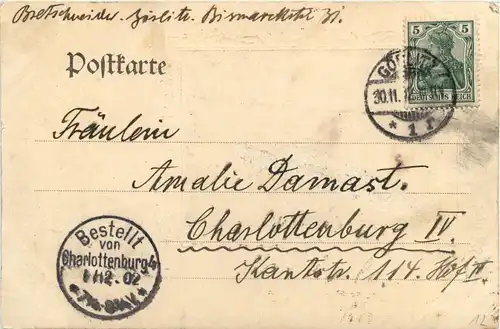 Bretschneider. Görlitz. Bismarckstr 31.
Postkarte
5
DEUTSCHES REICH
GÖRLITZ
30.11.
* 1 r
Fräulein
Amalie Damast.
Charlottenburg IV.
Kantstr. 114. Hof II
Bestellt
von
Charlottenburg 4
1/12. 02